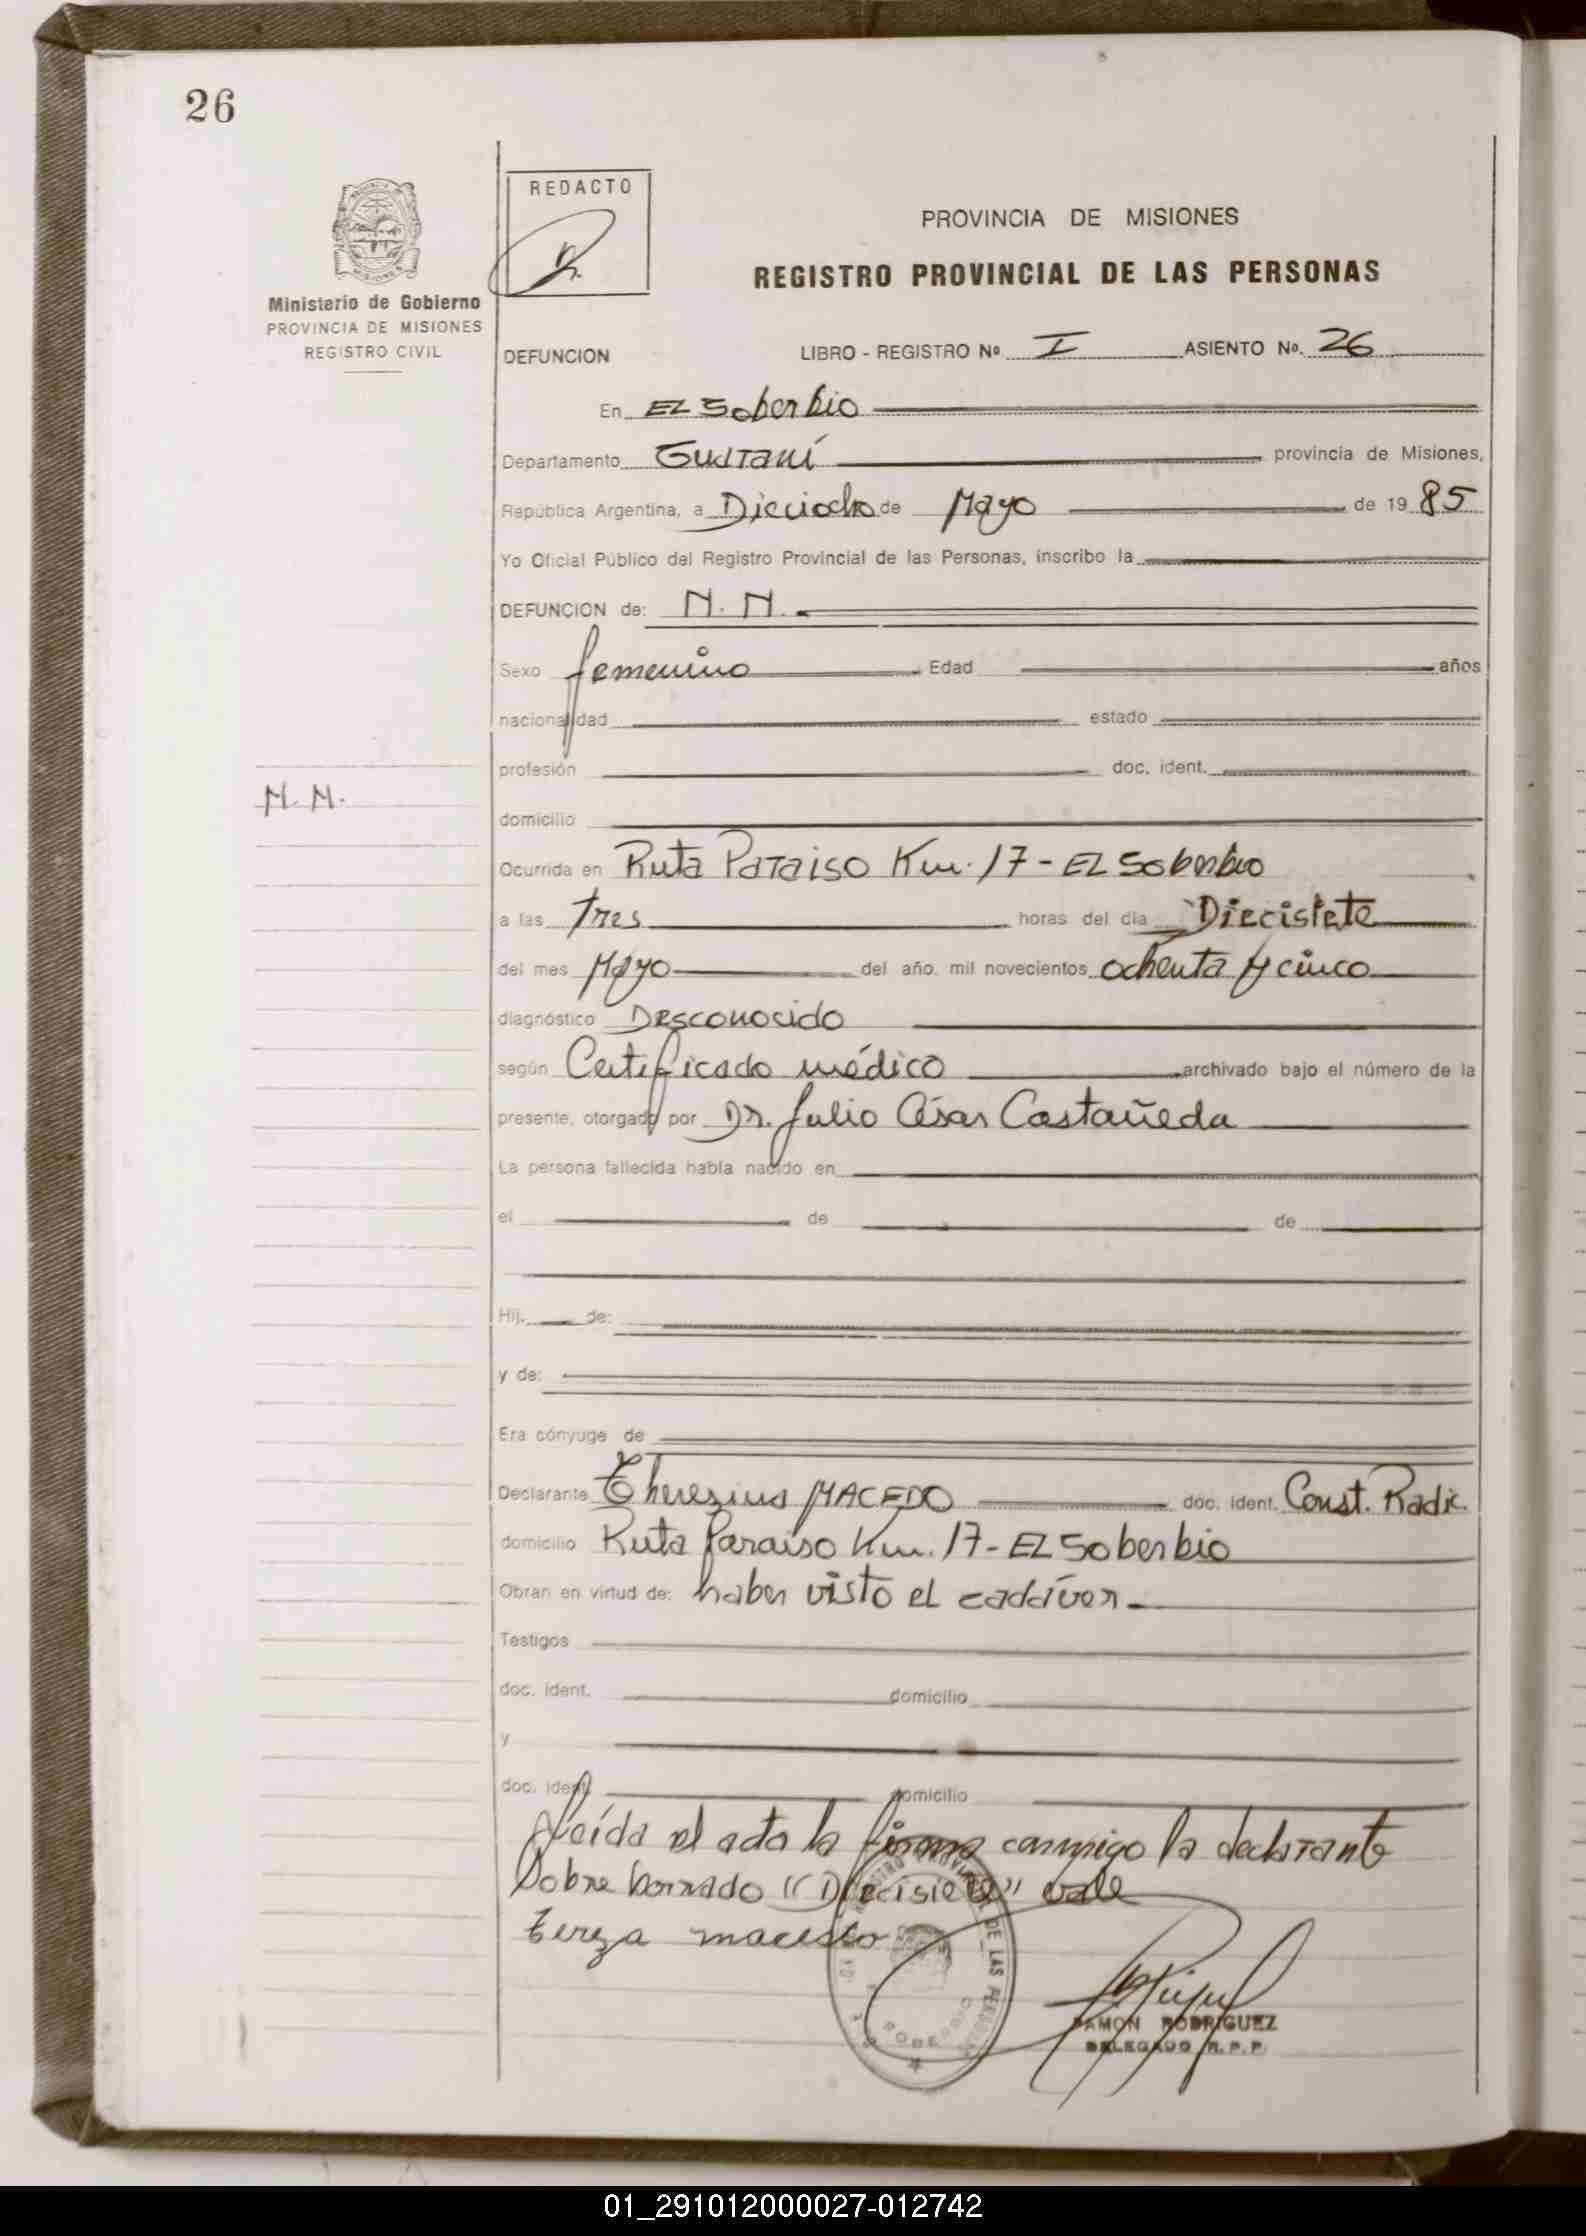 26
REDACTO
PROVINCIA DE MISIONES
REGISTRO PROVINCIAL DE LAS PERSONAS
Ministerio de Gobierno
PROVINCIA DE MISIONES
REGISTRO CIVIL
DEFUNCION LIBRO - REGISTRO Nº I ASIENTO Nº. 26
En EL Soberbio
Departamento Guaraní provincia de Misiones,
República Argentina, a Dieciocho de Mayo de 1985
Yo Oficial Público del Registro Provincial de las Personas, inscribo la
DEFUNCION de: N. N.
Sexo femenino Edad años
nacionalidad estado
profesión doc. ident.
N. N.
domicilio
Ocurrida en Ruta Paraiso Km. 17 - EL Soberbio
a las tres horas del día Diecisiete
del mes Mayo del año mil novecientos ochenta y cinco
diagnóstico Desconocido
según Certificado médico archivado bajo el número de la
presente, otorgado por Dr. Julio César Castañeda
La persona fallecida había nacido en
el de de
Hij. de:
y de:
Era cónyuge de
Declarante Therezina MACEDO doc. ident. Const. Radic.
domicilio Ruta Paraiso Km. 17 - EL Soberbio
Obran en virtud de: haber visto el cadáver.
Testigos
doc. ident. domicilio
y
doc. ident. domicilio
Leída el acta la firma conmigo la declarante
Sobre borrado "Diecisiete" vale
tereza macedo
RAMON RODRIGUEZ
DELEGADO R.P.P.
01_291012000027-012742